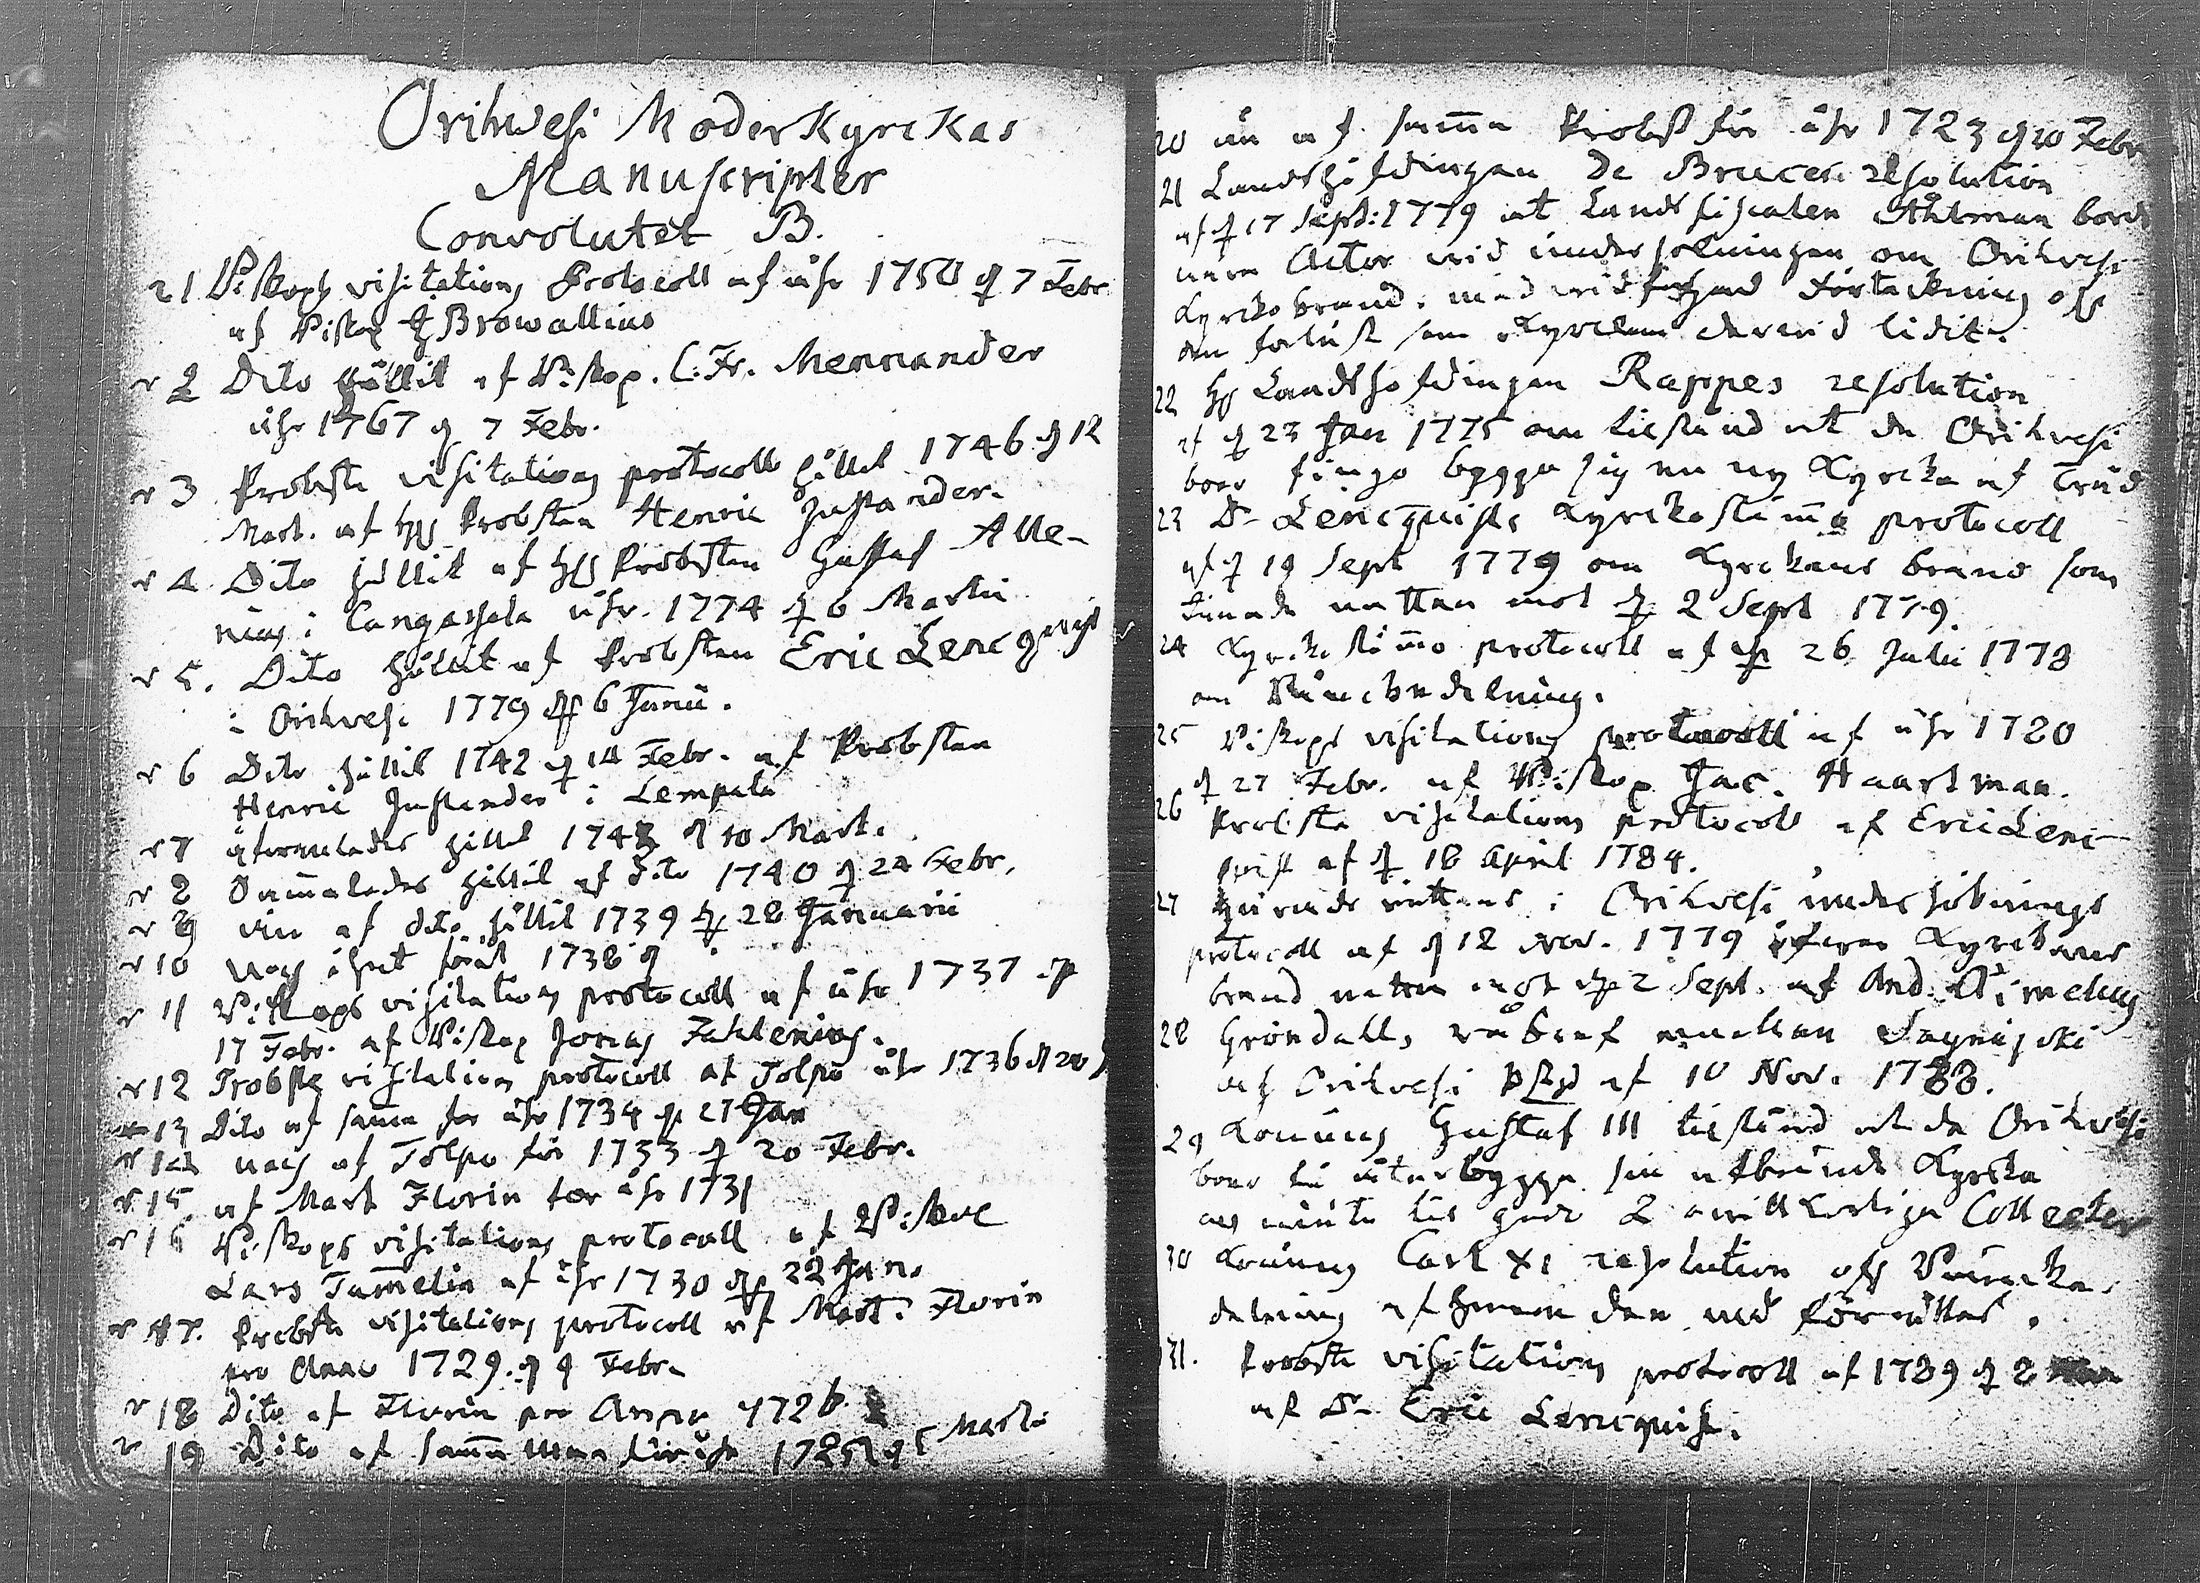 Orihwesi Moderkyrckas
Manuscripter
Convolutet B.
1 Biskops visitations Protocoll af åhr 1750 d 7 Febr
af Biskop J Browallius
2 Dito hållit af Biskop. C. Fr. Mennander
åhr 1767 d 7 Febr.
3 Probste visitations protocoll hållit 1746 d 12
Mart. af Probsten Henric Justander.
4 Dito hållit af Probsten Gustaf Alle-
nius i Cangasala åhr. 1774 d 6 Martii
5. Dito hållit af Probsten Eric Lencquist
i Orihvesi 1779 d 6 Junii.
6 Dito hållit 1742 d 14 Febr. af Probsten
Henric Justander i Lempela
7 hållit d 10 Mart.
8 Sammaledes hållit af Dito 1740 d 24 Febr.
9 än af dito hållit 1739 d 28 Januarii
10 1738 d
11 Biskops visitations protocoll af åhr 1737 d
17 Febr. af Biskop Jonas Fahlenius.
12 Probste visitations protocoll af Tolpo åhr 1736 d 20
13 Dito af samma för åhr 1734 d 27 Jan
14 af Tolpo för 1733 d 20 Febr.
15 af Mart Florin för åhr 1731
16 Biskops visitations protocoll af Biskop
Lars Tammelin af åhr 1730 d 22 Jan.
17. Probste visitations protocoll af Mart. Florin
pro Anno 1729. d 9 Febr.
18 Dito af Florin pro Anno 1726
19 Dito af samma för åhr Martii
20 än af samma Probst för åhr 1723 d 20 Febr
21 Landshöfdingen De Bruces resolution
af d 17 Sept: 1779 at Landsfiscalen Åhlman bord
vara Actor vid undersökningen om Orihvesi
Kyrcko brand. med vidfogad Förtekning
om förlust som Kyrckan derwid lidit.
22 Landshöfdingen Rappes resolution
af d 23 Jan 1775 om tilstånd at de Orihvesi
boer fingo bygga sig en ny Kyrcka af Träd
23 Dr Lencquists Kyrckostämma protocoll
af d 19 Sept 1779 om Kyrckans brand som
timade natten mot d 2 Sept 1779.
24 Kyrcko stämmo protocoll af d 26 Julii 1778
om Bänckedelning.
25 Biskops visitations protocoll af åhr
d 27 Febr. af Biskop Jac. Haartman.
26 Probste visitations protocoll af Eric Lenc-
qvist af d 18 April 1784.
27 Härads rättens i Orihvesi undersöknings
protocoll af d 18 Nov. 1779 öfwer Kyrckans
brand natten mot d 2 Sept. af And. Aimelæus
28 Gröndahls råbref
af Orihvesi af 10 Nov.
29 Konung Gustaf III tilstånd at de Orihvesi
boer få återbygga sin afbrände Kyrcka
2 Collecter
30 Konung Carl XI resolution Bäncka-
delning den må förrättas.
31. Probste visitations protocoll af 1789 d 2
af Dr Eric Lencquist.